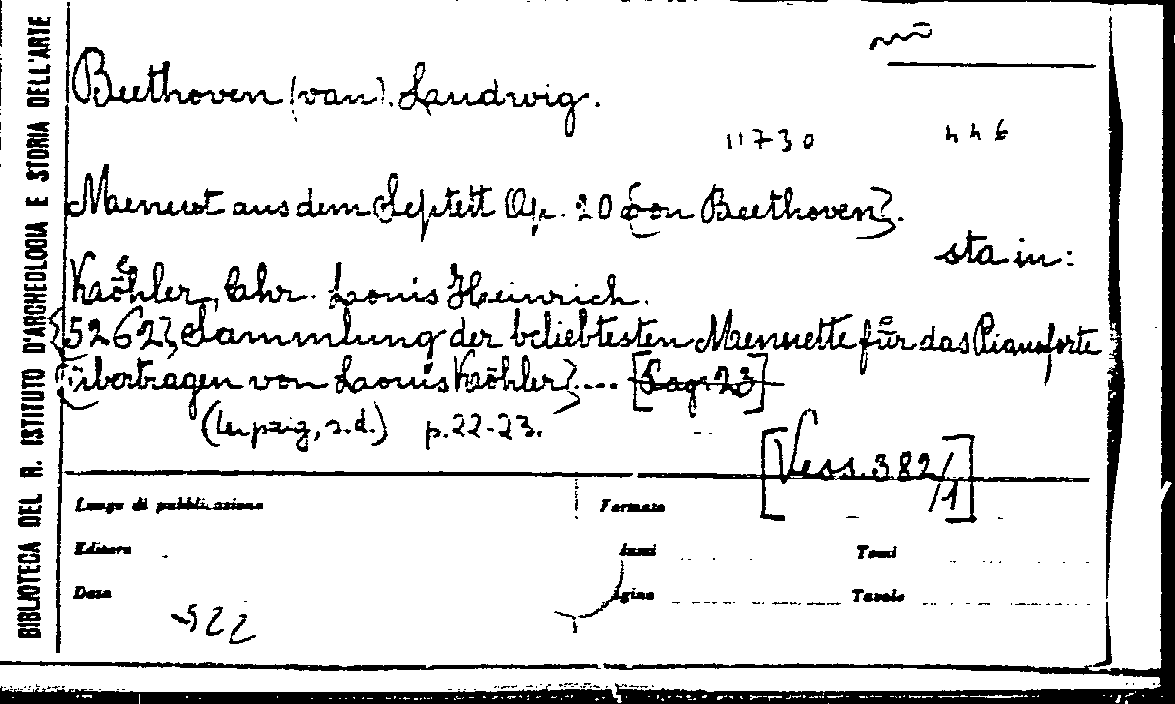 BIBLIOTECA DEL R. ISTITUTO D'ARCHEOLOGIA E STORIA DELL'ARTE
Beethoven (van). Laudwig.
11730 446
Menuet aus dem Septett Op. 20 {von Beethoven}.
sta in:
Kaöhler, Chr. Louis Heinrich.
{5262} Sammlung der beliebtesten Menuette für das Pianoforte
{übertragen von Laouis Kaöhler}.... [Pag. 23]
(Leipzig, s.d.) p. 22-23.
[Vess. 382/1]
Luogo di pubblicazione Formato
Editore Tomi
Data agine Tavole
522